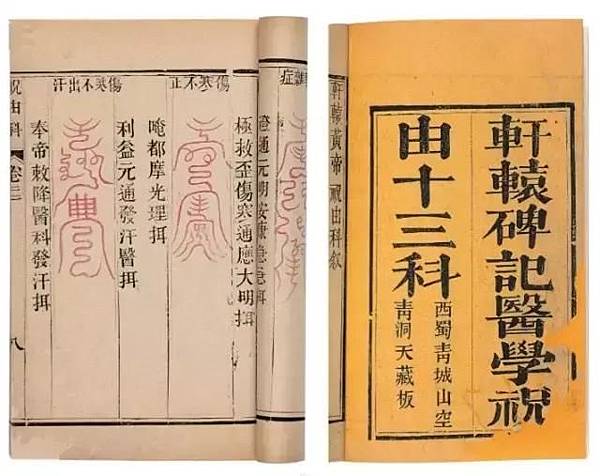 軒轅碑記醫學祝
由十三科
西蜀青城山空
青洞天藏板
軒轅黃帝祝由科敘
雜症
極救歪傷寒通應大明
傷寒不止
唵都摩光理揖
傷寒不出汗
利益元通發汗醫揖
奉帝敕降醫科發汗揖
祝由科
卷三
八